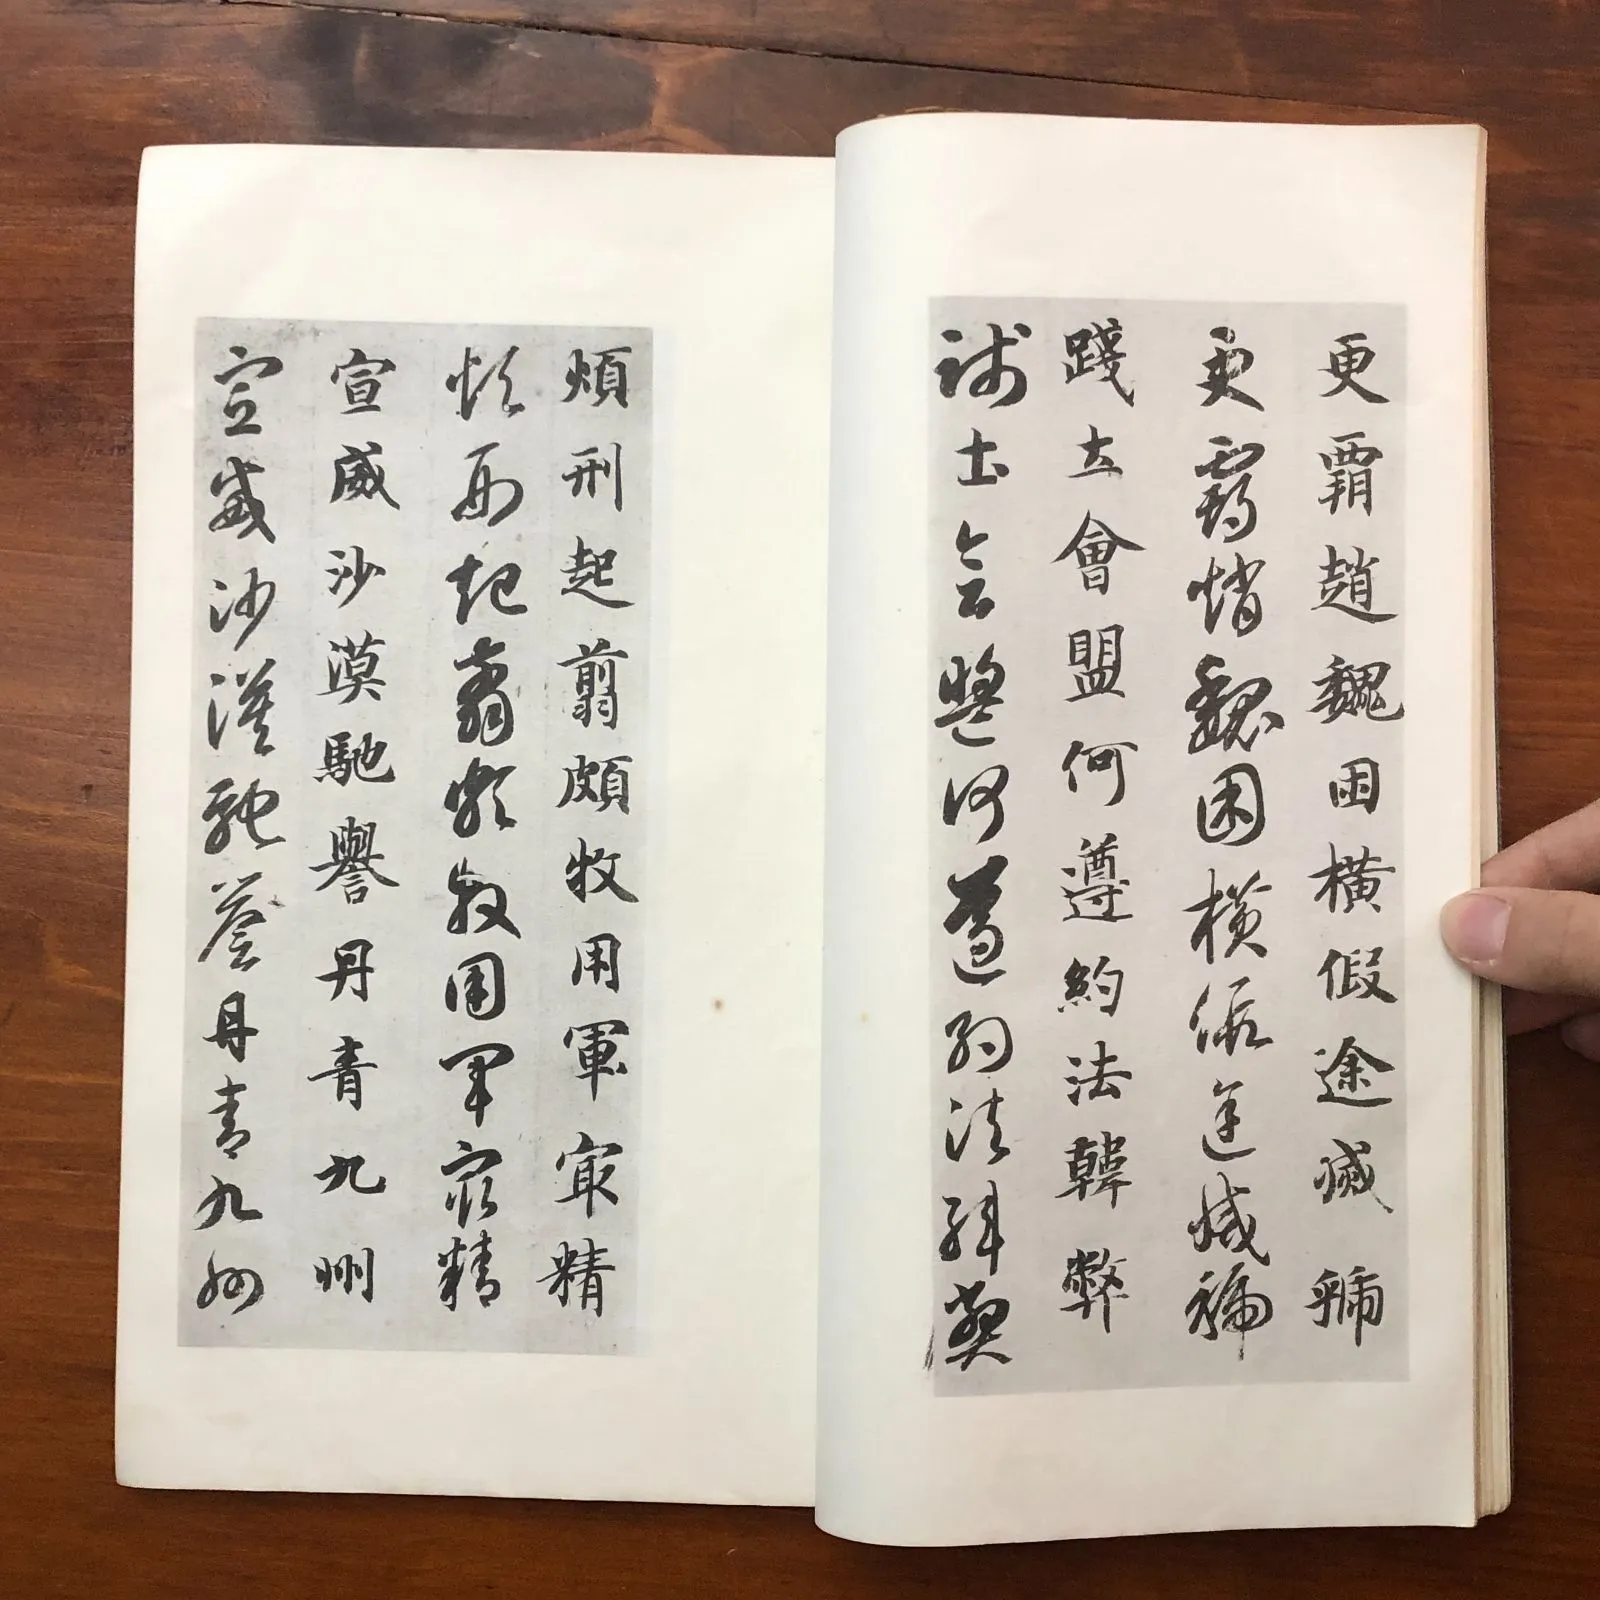 更霸趙魏困横假途滅虢
更霸趙魏困横假途滅虢
踐土會盟何遵約法韓弊
踐土會盟何遵約法韓弊
煩刑起翦頗牧用軍冣精
煩刑起翦頗牧用軍冣精
宣威沙漠馳譽丹青九州
宣威沙漠馳譽丹青九州